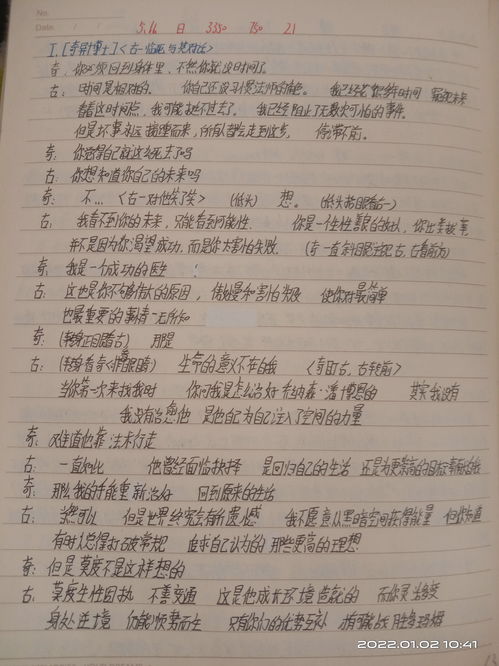 No.
Date
5.16 日 3350 750 21
I.[奇异博士]<古一临死与奇对话>
奇:你必须回到身体里,不然你就没时间了
古:时间是相对的。 你自己还没习惯法师的角色。 我已经花了很多年时间 窥视未来
看着这时间点,我可能挺不过去了。 我已经阻止了无数次可怕的事件。
但是坏事永远接踵而来,所有人都会走到这步, 停滞不前。
奇:你觉得自己就这么死去了吗
古:你想知道你自己的未来吗
奇:不… <古一对他笑了笑> (低头) 想。 (低头抬眼看古一)
古:我看不到你的未来,只能看到可能性。 你是一个生性善良的
并不是因为你渴望成功,而是你太害怕失败。 (奇一直 古,古看前方)
奇:我是一个成功的医生
古:这也是你不够伟大的原因,傲慢和害怕失败 使你对最简单
也最重要的事情一无所知
奇:(转身正目瞪古) 那是
古:(转身看奇 ) 生命的意义不在自我 <奇盯古,古转前>
当你第一次来找我时 你问我是怎么治好乔纳森·潘博恩的 其实我没有
我没有治愈他 是他自己为自己注入了空间的力量
奇:双腿瘫也靠法术行走
古:一直如此 他曾经面临抉择 是回归自己的生活 还是为更崇高的目标奉献自我
奇:那么我的手能重新治好 回到原来的生活
古:当然可以 但是世界终究会有所遗憾 我不愿意从黑暗空间获得能量 但你知道
有时人总得打破常规 追求自己认为的那些更高的理想
奇:但是莫度不是这样想的
古:莫度生性固执 不善变通 这是他成长环境造就的 而你灵活多变
身处逆境 仍能顺势而生 只有你们的优势互补 才有可能战胜多玛姆
2022.01.02 10:41